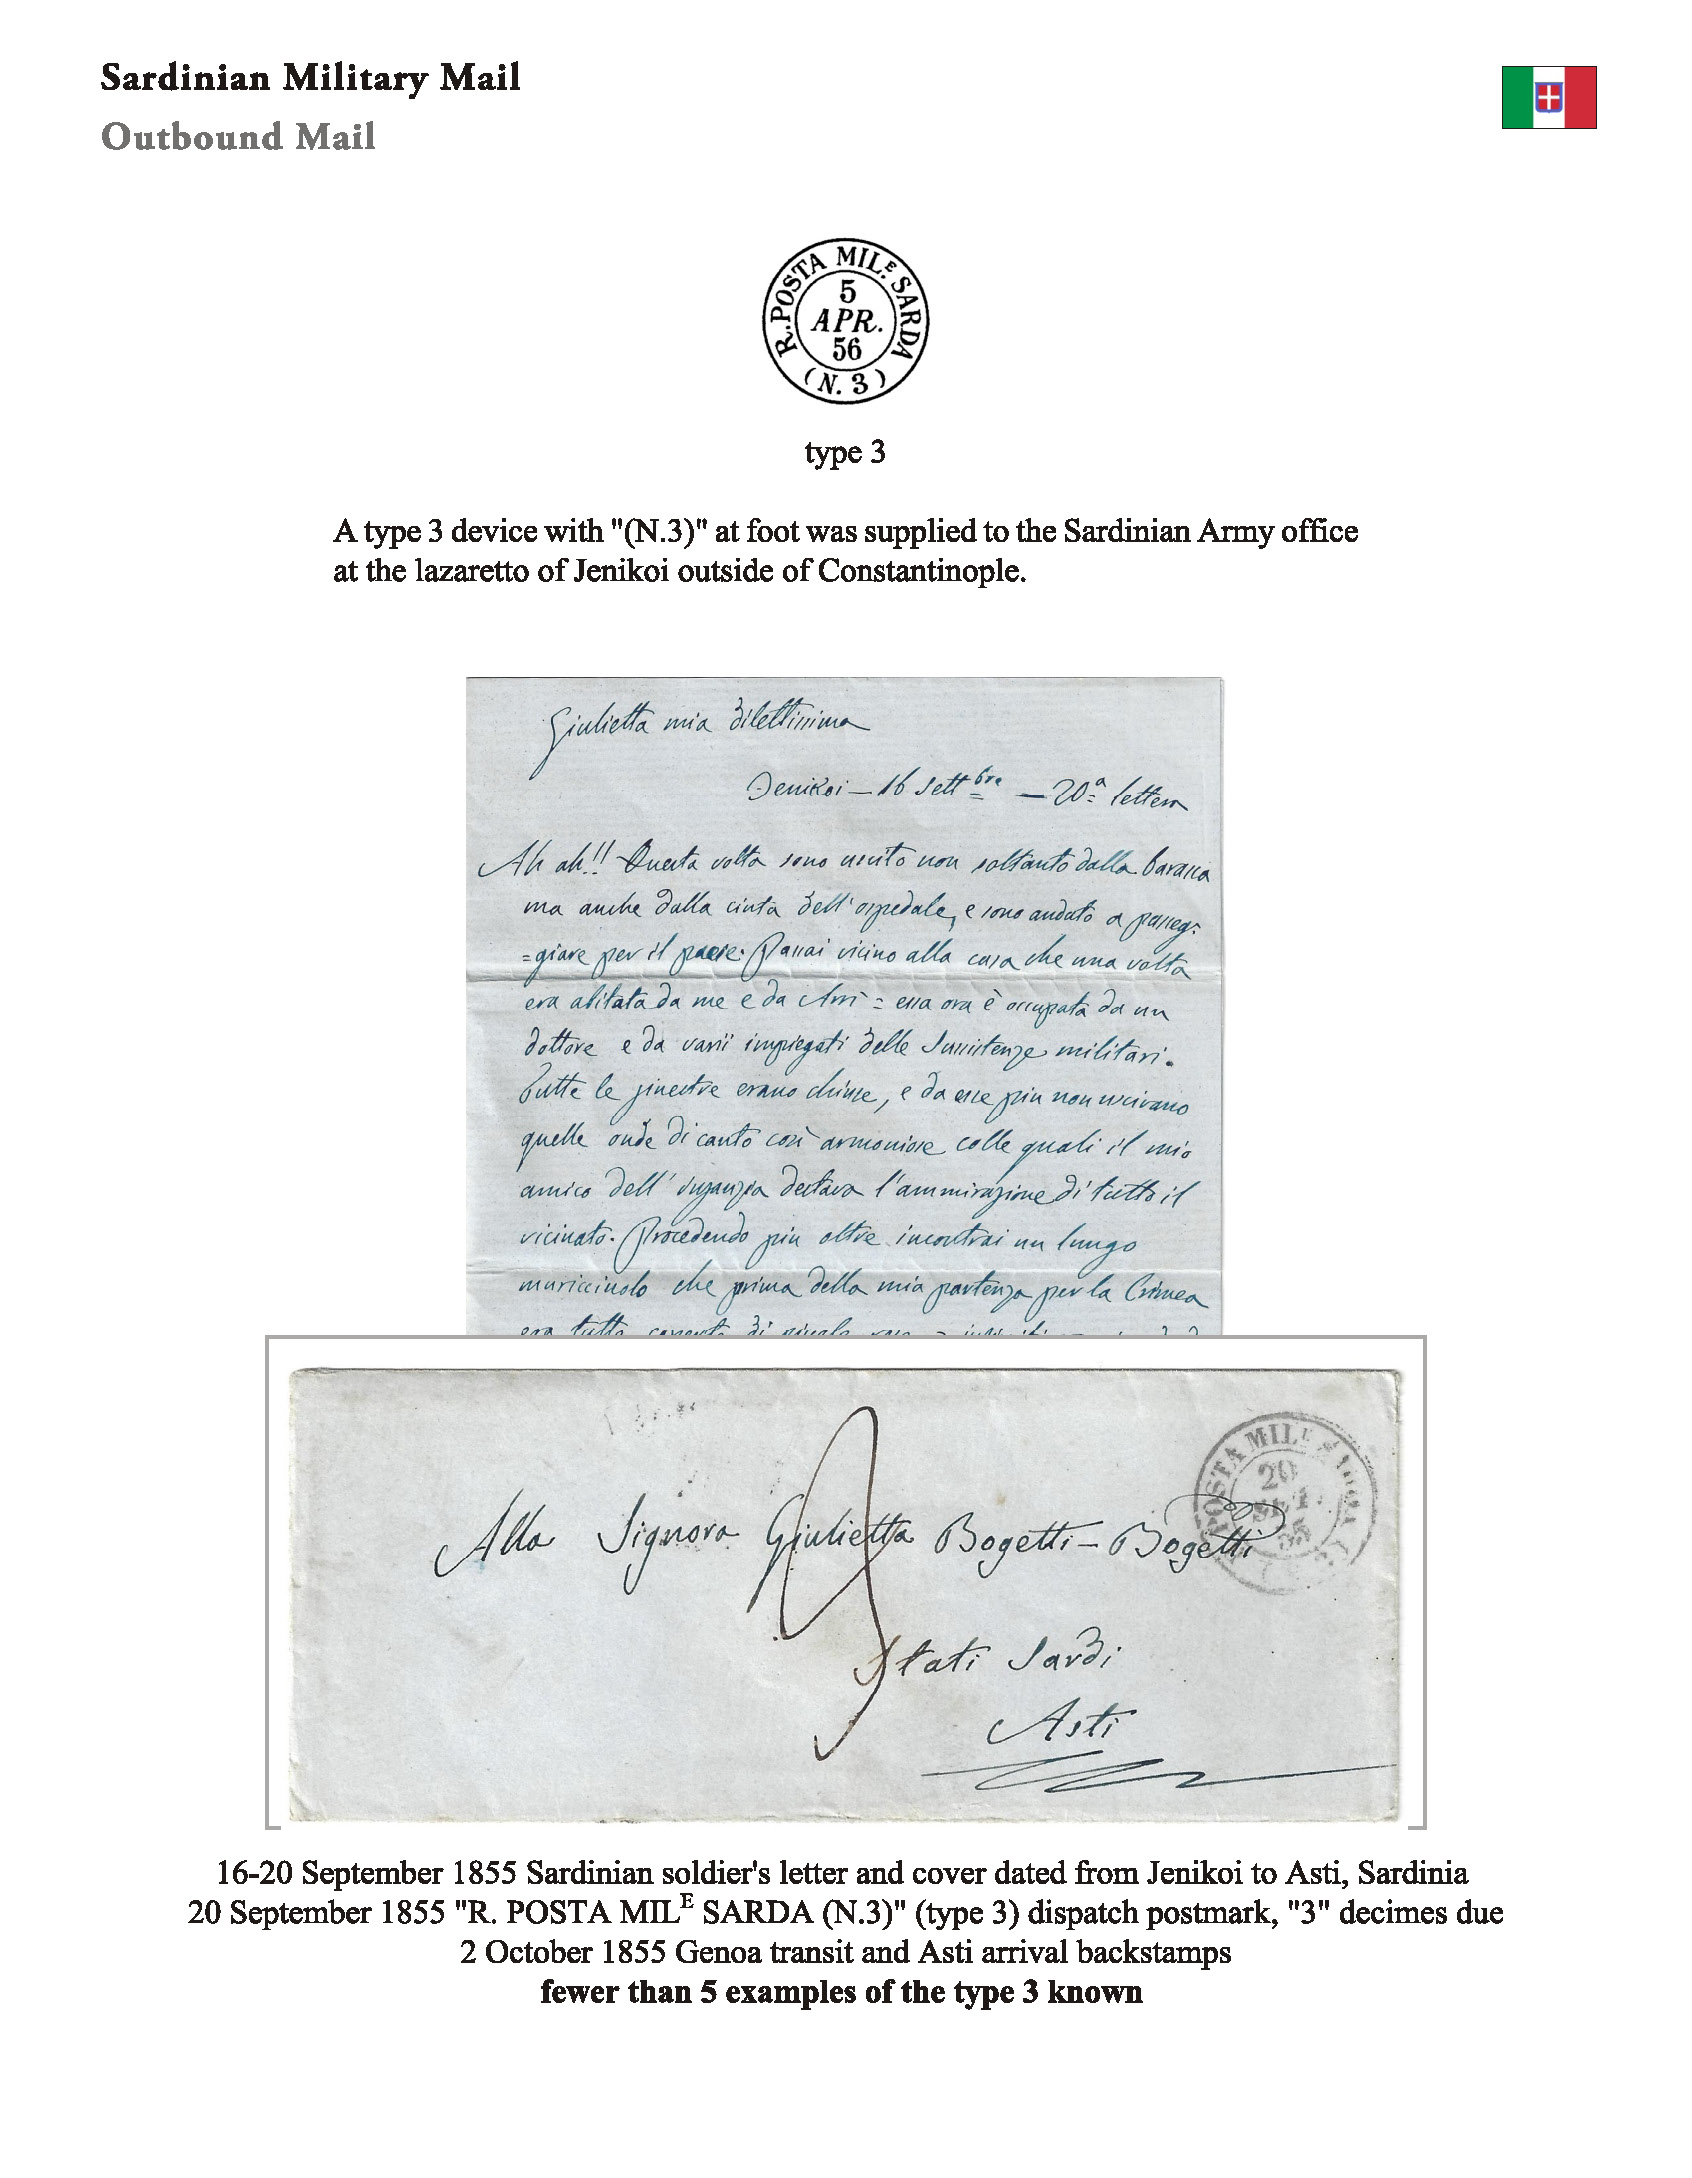 Sardinian Military Mail
Outbound Mail
R. POSTA MIL.E SARDA
5
APR.
56
(N. 3)
type 3
A type 3 device with "(N.3)" at foot was supplied to the Sardinian Army office
at the lazaretto of Jenikoi outside of Constantinople.
Giulietta mia dilettissima
Jenikoi — 16 Settbre — 20a lettera
Ah ah!! Questa volta sono uscito non soltanto dalla baracca
ma anche dalla cinta dell'ospedale, e sono andato a passeg:
=giare per il paese. Passai vicino alla casa che una volta
era abitata da me e da = essa ora è occupata da un
dottore e da varii impiegati delle Sussistenze militari.
Tutte le finestre erano chiuse, e da esse piu non uscivano
quelle onde di canto così armoniose colle quali il mio
amico dell' destava l'ammirazione di tutto il
vicinato. Procedendo piu oltre incontrai un lungo
muricciuolo che prima della mia partenza per la Crimea
era tutto coperto di
POSTA MILE
20
SET.
55
3
Alla Signora Giulietta Bogetti – Bogetti
Stati Sardi
Asti
16-20 September 1855 Sardinian soldier's letter and cover dated from Jenikoi to Asti, Sardinia
20 September 1855 "R. POSTA MILE SARDA (N.3)" (type 3) dispatch postmark, "3" decimes due
2 October 1855 Genoa transit and Asti arrival backstamps
fewer than 5 examples of the type 3 known